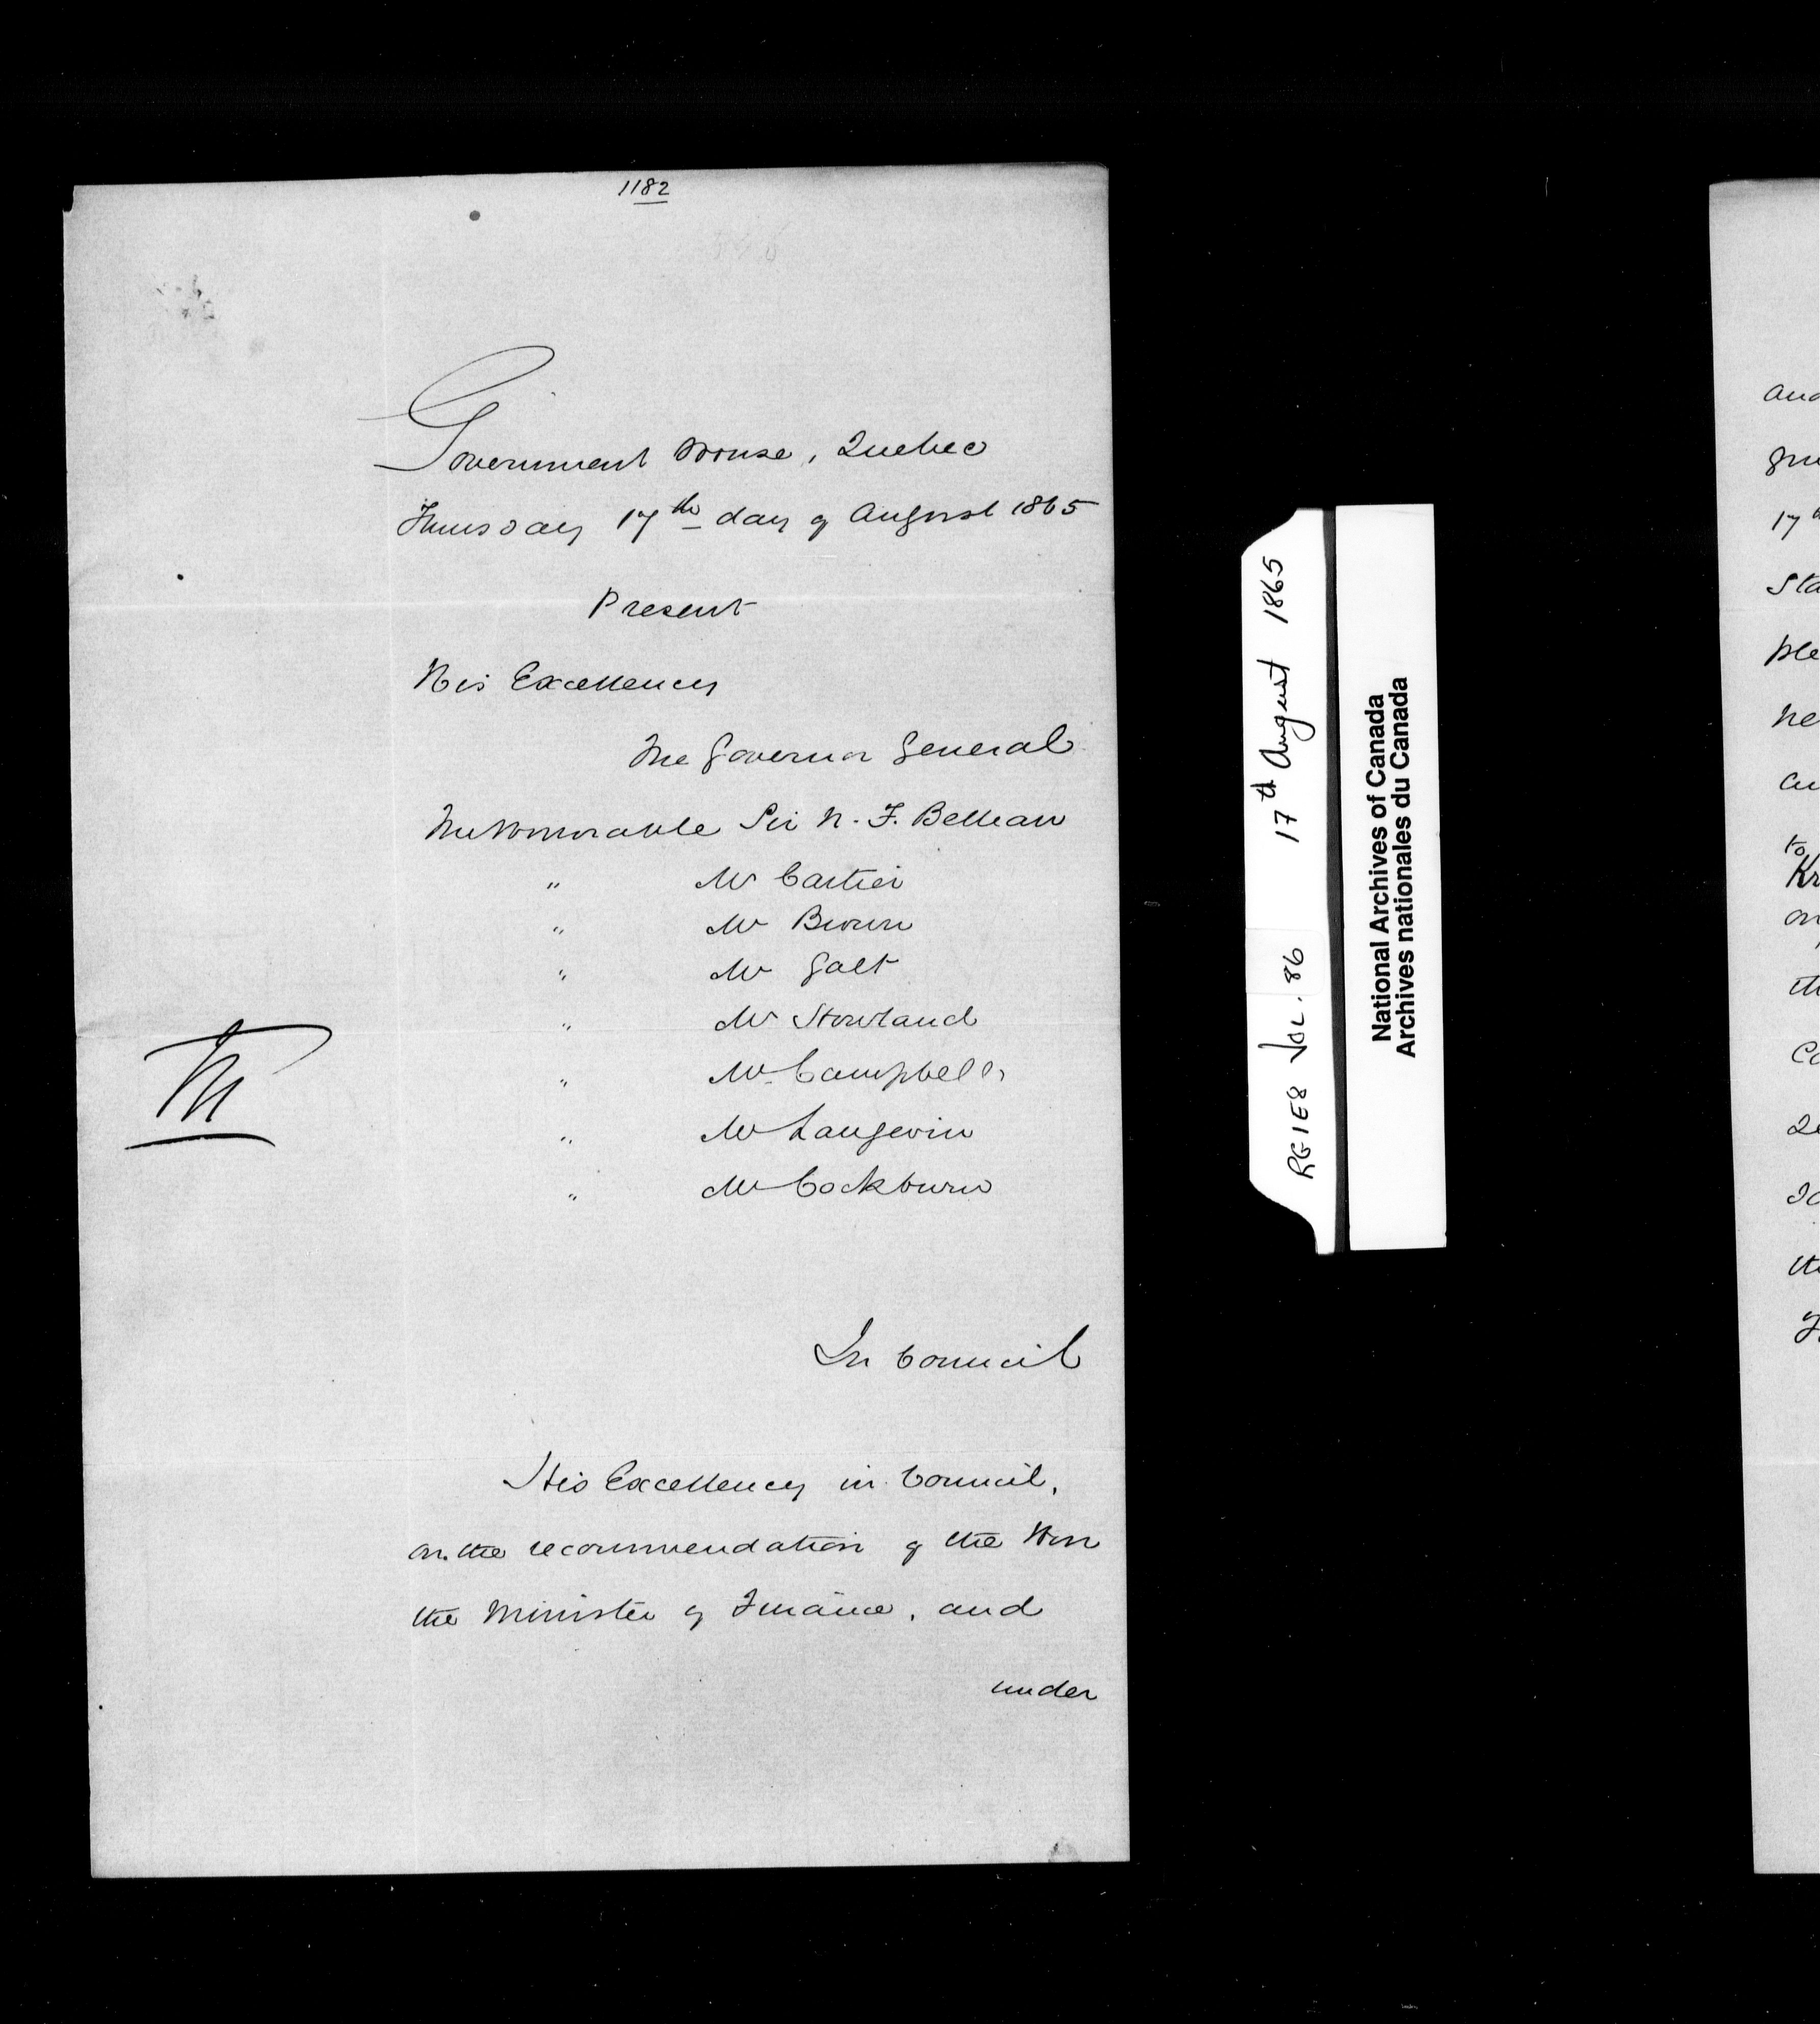 1182
Government House, Quebec
Thursday 17th day of August 1865
Present
His Excellency
The Governor General
The Honorable Sir N. F. Belleau
" Mr Cartier
" Mr Brown
" Mr Galt
" Mr Howland
" Mr Campbell
" Mr Langevin
" Mr Cockburn
In Council
His Excellency in Council,
on the recommendation of the Hon
the Minister of Finance, and
under
RG1E8 VOL. 86 17th August 1865
National Archives of Canada
Archives nationales du Canada
17